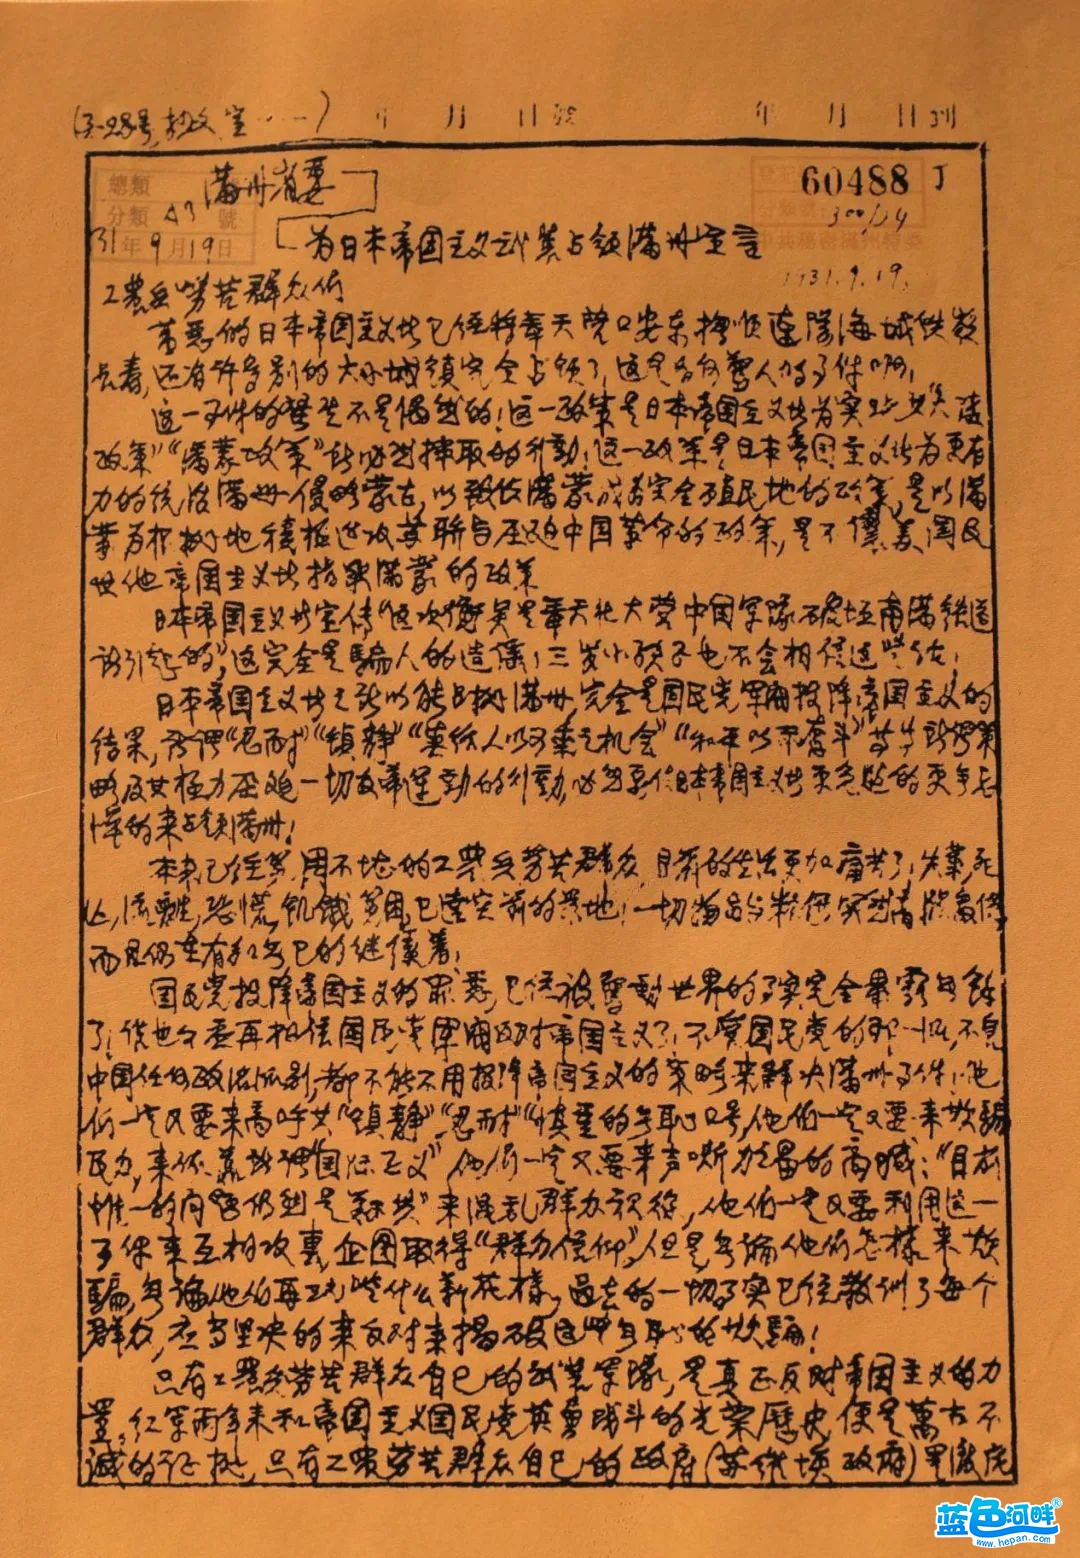 年 月 日 年 月 日到
總類
分類 號
年 月 日
31 9 19
A3
滿州省委
60488 丁
300/24
1931.9.19.
为日本帝国主义武装占领满州宣言
工農兵劳苦群众们
万恶的日本帝国主义者已经将奉天营口安东撫順遼陽海城铁岭
长春,还有许多别的大小城镇完全占领了,这是多么惊人的事件啊!
这一事件的發生不是偶然的!这一政策是日本帝国主义者为实现其大陆
政策”“满蒙政策”所必然採取的行動!这一政策是日本帝国主义者为更有
力的统治满州侵略蒙古,以致使满蒙成为完全殖民地的政策,是以满
蒙为根据地積極進攻苏联与压迫中国革命的政策,是不讓美国及
其他帝国主义者指染满蒙的政策
日本帝国主义者宣传“这次衝突是奉天北大营中国军隊破坏南满铁道
所引起的”,这完全是騙人的造谣,三岁小孩子也不会相信这些话!
日本帝国主义者之所以能占据满州,完全是国民党军阀投降帝国主义的
结果,所谓“忍耐”“鎮静”“莫给人以可乘之机会”“和平以不奋斗”等等的策
略及其極力压迫一切反帝運動的行動,必然要使日本帝国主义者更急进的更无忌
惮的来占领满州!
本来已经 不堪的工農兵劳苦群众,目前的生活更加痛苦了,失業死
亡,流離,恐慌,飢饿 困,已達空前的 地!一切物品与粮食突然
而且仍在有加无已的继续着!
国民党投降帝国主义的罪恶,已经被震動世界的事实完全暴露无餘
了!谁也不应再相信国民党军阀反对帝国主义了!不管国民党的那一派,不管
中国任何政治派别,都不能不用投降帝国主义的策略来解决满州事件!他
们一定又要来高呼其“鎮静”“忍耐”“慎重的无耻口号,他们一定又要来欺騙
民力,来依靠所谓“国际正义”他们一定又要来声嘶力竭的高喊:“目前
惟一的问题仍然是 共”来混乱群力视线,他们一定又要利用这一
事件来互相攻袭,企图取得“群力信仰”,但是无論他们怎樣来欺
騙,无論他们再玩些什么新花樣,过去的一切事实已经教训了每个
群众,应当坚决的来反对来揭破这些无耻的欺騙!
只有工農兵劳苦群众自己的武装军隊,是真正反对帝国主义的力
量,红军两年来和帝国主义国民党英勇战斗的光荣歷史,便是萬古不
滅的证据,只有工農劳苦群众自己的政府(苏维埃政府)是澈底
蓝色河畔
www.hepan.com